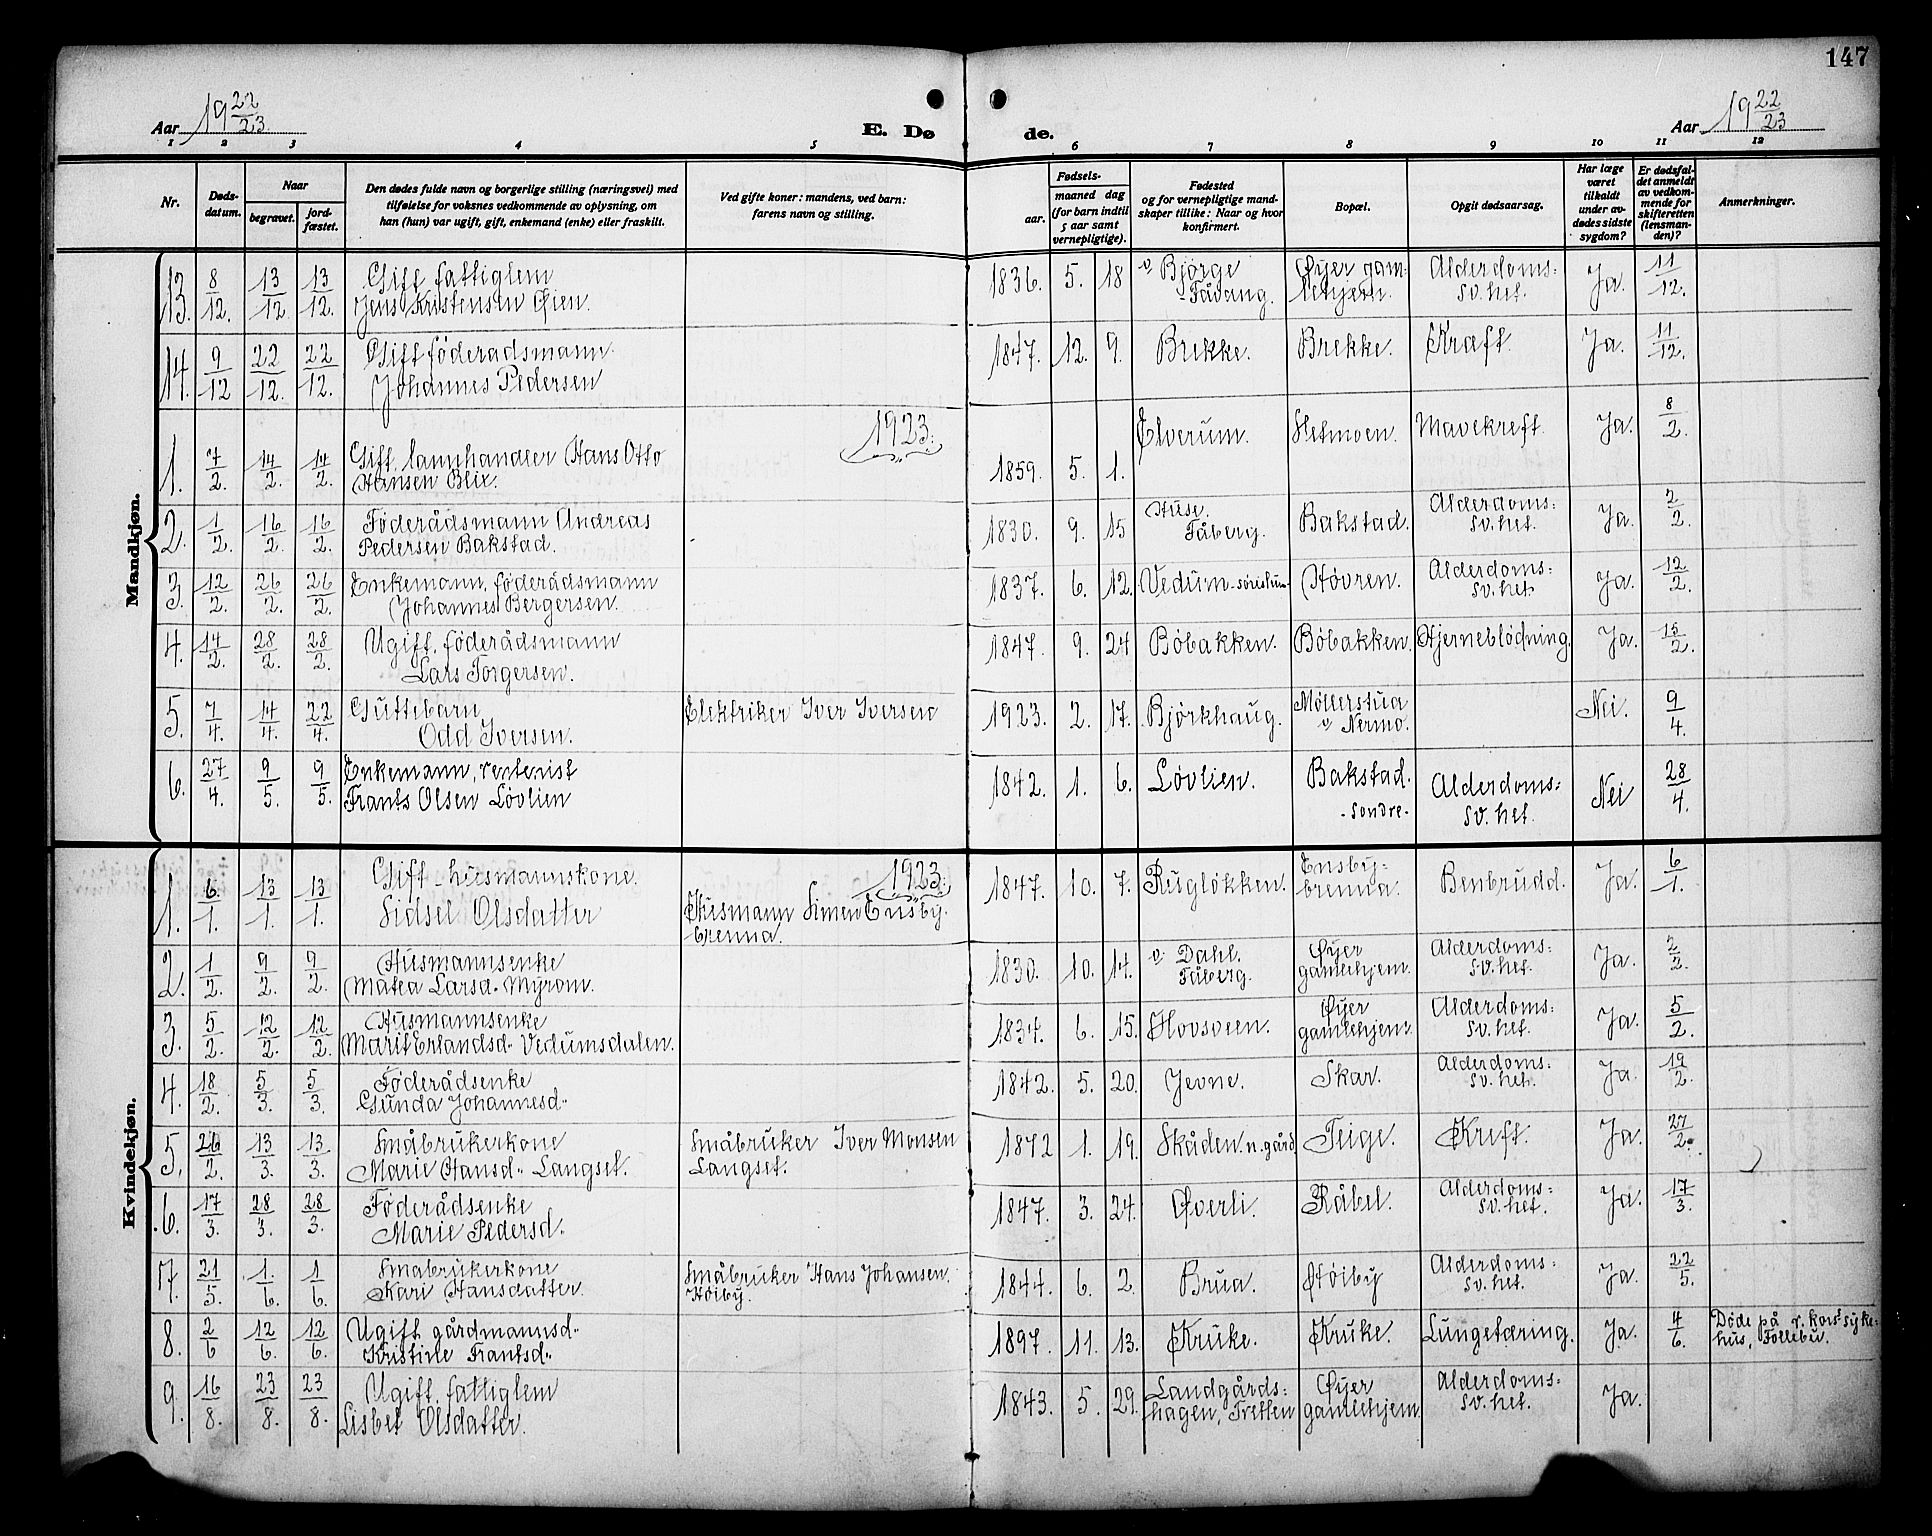 147
Aar 19 22/23
E. Døde.
Aar 19 22/23
1 2 3 4 5 6 7 8 9 10 11 12
Nr.
Døds-
datum.
Naar
begravet.
jord-
fæstet.
Den dødes fulde navn og borgerlige stilling (næringsvei) med
tilføielse for voksnes vedkommende av oplysning, om
han (hun) var ugift, gift, enkemand (enke) eller fraskilt.
Ved gifte koner: mandens, ved barn:
farens navn og stilling.
Fødsels-
aar.
maaned dag
(for barn indtil
5 aar samt
vernepligtige).
Fødested
og for vernepligtige mand-
skaper tillike: Naar og hvor
konfirmert.
Bopæl.
Opgit dødsaarsag.
Har læge
været
tilkaldt
under av-
dødes sidste
sygdom?
Er dødsfal-
det anmeldt
av vedkom-
mende for
skifteretten
(lensman-
den)?
Anmerkninger.
Mandkjøn.
13. 8/12. 13/12 13/12. Gift fattiglem
Jens Kristensen Øien. 1836. 5. 18 v Bjørge
Fåvang. Øyer gam-
lehjem. Alderdoms:
sv.het. Ja. 11/12.
14. 9/12 22/12. 22/12. Gift føderadsmann
Johannes Pedersen 1847. 12. 9. Brekke. Brekke. Kræft. Ja. 11/12.
1923.
1. 7/2. 14/2. 14/2. Gift, lannhandler Hans Otto
Hansen Blix. 1859. 5. 1. Elverum. Hetmoen. Mavekreft. Ja. 8/2.
2. 1/2. 16/2. 16/2. Føderådsmann Andreas
Pedersen Bakstad. 1830. 9. 15 Huse.
Fåberg. Bakstad. Alderdoms:
sv.het. Ja. 2/2.
3. 12/2. 26/2. 26/2. Enkemann, føderådsmann
Johannes Bergersen. 1837. 6. 12. Vedum Høvren. Alderdoms:
sv.het Ja. 12/2.
4. 14/2. 28/2. 28/2. Ugift, føderådsmann
Lars Torgersen. 1847. 9. 24 Bøbakken. Bøbakken. Hjerneblødning. Ja. 15/2.
5. 7/4. 14/4. 22/4. Guttebarn
Odd Iversen. Elektriker Iver Iversen 1923. 2. 17. Bjørkhaug. Møllerstua
v Nermo. Nei. 9/4.
6. 27/4. 9/5. 9/5. Enkemann, rentenist
Frants Olsen Løvlien 1842. 1. 6. Løvlien. Bakstad.
- søndre - Alderdoms:
sv.het. Nei 28/4.
Kvindekjøn.
1923.
1. 6/1. 13/1. 13/1. Gift - husmannskone.
Sidsel Olsdatter Husmann Simen Ensby-
brenna. 1847. 10. 7. Rugløkken. Ensby-
brenna. Benbrudd. Ja. 6/1.
2. 1/2. 9/2. 9/2. Husmannsenke
Matea Larsd. Myrom. 1830. 10. 14. v Dahl.
Fåberg. Øyer
gamlehjem. Alderdoms:
sv.het. Ja. 2/2.
3. 5/2. 12/2. 12/2. Husmannsenke
Marit Erlandsd. Vedumsdalen. 1834. 6. 15. Hovsveen. Øyer
gamlehjem. Alderdoms:
sv.het. Ja. 5/2.
4. 18/2. 5/3. 5/3. Føderådsenke
Gunda Johannesd. 1842. 5. 20. Jevne. Skar. Alderdoms:
sv.het. Ja. 19/2.
5. 26/2. 13/3. 13/3. Småbrukerkone
Marie Hansd. Langset. Småbruker Iver Monsen
Langset. 1872 1. 19. Skåden n. gård Teige. Kreft. Ja. 27/2.
6. 17/3. 28/3. 28/3. Føderådsenke
Marie Pedersd. 1847. 3. 24. Øverli. Råbel. Alderdoms:
sv.het. Ja. 17/3.
7. 21/5. 1/6. 1/6. Småbrukerkone
Kari Hansdatter. Småbruker Hans Johansen.
Høiby. 1844. 6. 2. Brua. Høiby Alderdoms:
sv.het. Ja. 22/5.
8. 2/6 12/6. 12/6. Ugift, gårdmannsd.
Kristine Frantsd. 1897. 11. 13. Kruke. Kruke. Lungetæring. Ja. 4/6. Døde på r. kors syke-
hus, Follebu.
9. 16/8. 23/8. 23/8. Ugift, fattiglem
Lisbet Olsdatter. 1843. 5. 29. Landgårds:
hagen, Tretten Øyer
gamlehjem. Alderdoms:
sv.het. Ja.